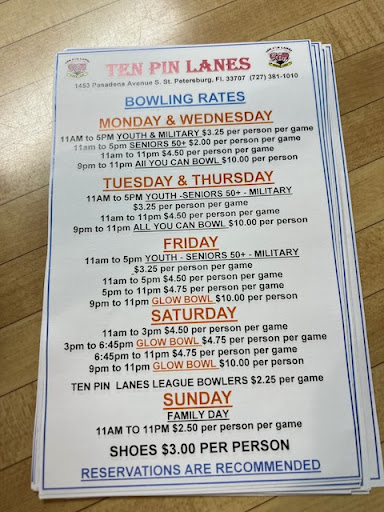 TEN PIN LANES
1453 Pasadena Avenue S. St. Petersburg, Fl. 33707 (727) 381-1010
BOWLING RATES
MONDAY & WEDNESDAY
11AM to 5PM YOUTH & MILITARY $3.25 per person per game
11am to 5pm SENIORS 50+ $2.00 per person per game
11am to 11pm $4.50 per person per game
9pm to 11pm All YOU CAN BOWL $10.00 per person
TUESDAY & THURSDAY
11AM to 5PM YOUTH -SENIORS 50+ - MILITARY
$3.25 per person per game
11am to 11pm $4.50 per person per game
9pm to 11pm ALL YOU CAN BOWL $10.00 per person
FRIDAY
11am to 5pm YOUTH - SENIORS 50+ - MILITARY
$3.25 per person per game
11am to 5pm $4.50 per person per game
5pm to 11pm $4.75 per person per game
9pm to 11pm GLOW BOWL $10.00 per person
SATURDAY
11am to 3pm $4.50 per person per game
3pm to 6:45pm GLOW BOWL $4.75 per person per game
6:45pm to 11pm $4.75 per person per game
9pm to 11pm GLOW BOWL $10.00 per person
TEN PIN LANES LEAGUE BOWLERS $2.25 per game
SUNDAY
FAMILY DAY
11AM TO 11PM $2.50 per person per game
SHOES $3.00 PER PERSON
RESERVATIONS ARE RECOMMENDED